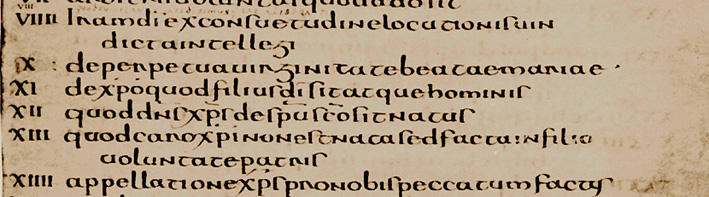 VIIII Iram di ex consuetudine locutionis uin
dicta intellegi
X de perpetua uirginitate beatae mariae
XI de xpo quod filius di sit atque hominis
XII quod dns xps de spu sco sit natus
XIII quod caro xpi non est nata sed facta in filio
uoluntate patris
XIIII appellatione xps pro nobis peccatum factus